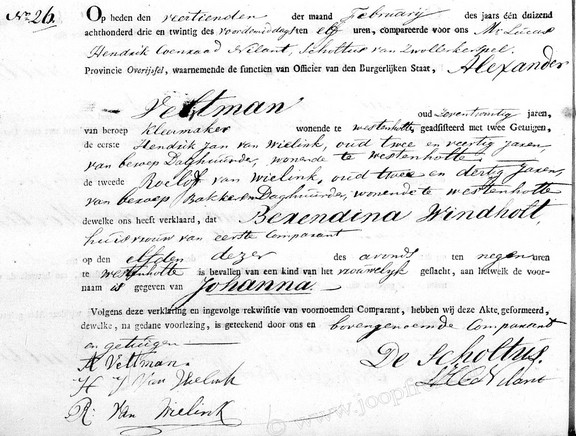 No. 26.
Op heden den veertienden der maand February des jaars één duizend
achthonderd drie en twintig des voordemiddags ten elf uren, compareerde voor ons Mr. Lucas
Hendrik Coenraad Nilant, Scholtus van Zwollerkerspel,
Provincie Overijssel, waarnemende de functien van Officier van den Burgerlijken Staat, Alexander
Veltman oud zeventwintig jaren,
van beroep kleermaker wonende te westenholte, geadsisteerd met twee Getuigen,
de eerste Hendrik Jan van Wielink, oud twee en veertig jaren,
van beroep Daghuurder, wonende te Westenholte
de tweede Roelof van Wielink, oud twee en dertig jaren,
van beroep Bakker en Daghuurder, wonende te westenholte
dewelke ons heeft verklaard, dat Berendina Windholt,
huisvrouw van eerste Comparant
op den elfden dezer des avonds ten negen uren
te westenholte is bevallen van een kind van het vrouwelyk geslacht, aan hetwelk de voor-
naam is gegeven van Johanna
Volgens deze verklaring en ingevolge rekwisitie van voornoemden Comparant, hebben wij deze Akte geformeerd,
dewelke, na gedane voorlezing, is geteekend door ons en bovengenoemde Comparant
en getuigen
A Veltman. De Scholtus.
H J Van Wielink LHC Nilant
R: Van Wielink
© www.joopfr